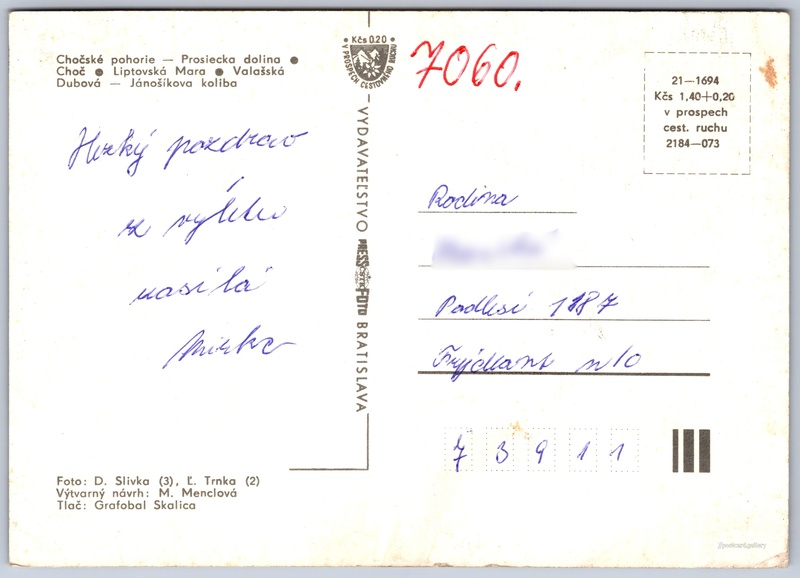 Chočské pohorie — Prosiecka dolina ●
Choč ● Liptovská Mara ● Valašská
Dubová — Jánošíkova koliba
Hezký pozdrav
z výletu
zasílá
Mirka
Foto: D. Slivka (3), Ľ. Trnka (2)
Výtvarný návrh: M. Menclová
Tlač: Grafobal Skalica
Kčs 0.20
V PROSPECH CESTOVNÉHO RUCHU
VYDAVATEĽSTVO PRESSFOTO BRATISLAVA
7060.
21—1694
Kčs 1,40+0,20
v prospech
cest. ruchu
2184—073
Rodina
Podlesí 1187
Frýdlant n/O
73911